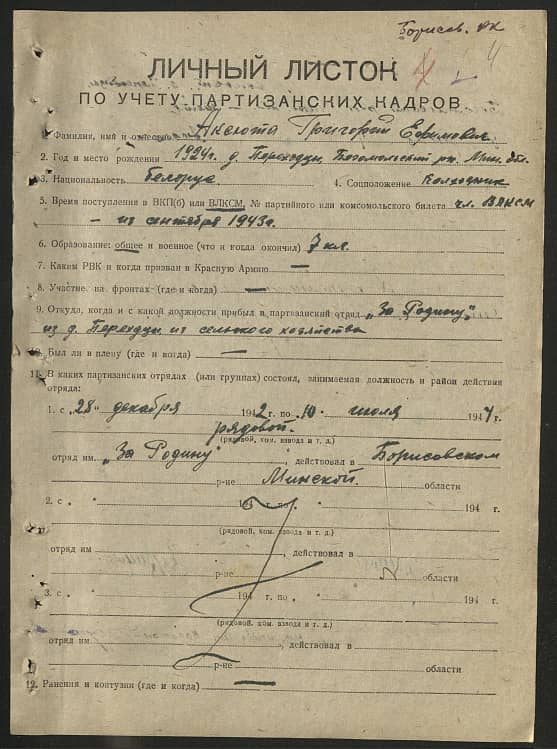 Борисов. РК
4
ЛИЧНЫЙ ЛИСТОК
ПО УЧЕТУ ПАРТИЗАНСКИХ КАДРОВ
1. Фамилия, имя и отчество Аксюта Григорий Ефимович
2. Год и место рождения 1924г. д. Переходцы, Бегомльский рн. Мин. обл.
3. Национальность белорус 4. Соцположение колхозник
5. Время поступления в ВКП(б) или ВЛКСМ, № партийного или комсомольского билета чл. ВЛКСМ
— из сентября 1943г.
6. Образование: общее и военное (что и когда окончил) 7 кл.
7. Каким РВК и когда призван в Красную Армию —
8. Участие на фронтах (где и когда) —
9. Откуда, когда и с какой должности прибыл в партизанский отряд „За Родину"
из д. Переходцы из сельского хозяйства
10. Был ли в плену (где и когда) —
11. В каких партизанских отрядах (или группах) состоял, занимаемая должность и район действия
отряда:
1. с „28" декабря 1942 г. по „10" июля 1944 г.
рядовой.
(рядовой, ком. взвода и т. д.)
отряд им. „За Родину", действовал в Борисовском
р-не Минской области
2. с „ " 194 г. по „ " 194 г.
(рядовой, ком. взвода и т. д.)
отряд им , действовал в
р-не области
3. с „ " 194 г. по „ " , 194 г.
(рядовой, ком. взвода и т. д.)
отряд им. , действовал в
р-не области
12. Ранения и контузии (где и когда) —